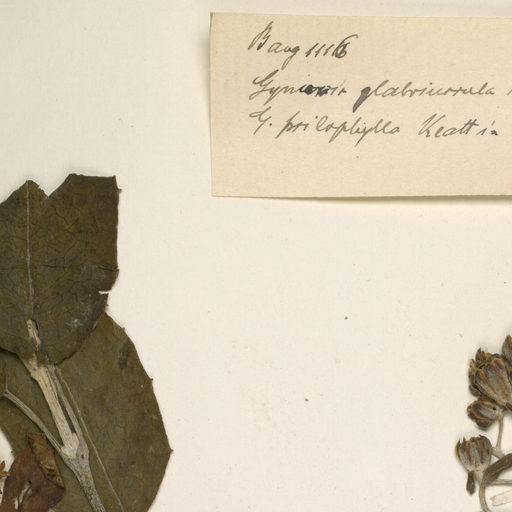 Bang 1116
Gynoxis glabriuscula
G. psilophylla Klatt in